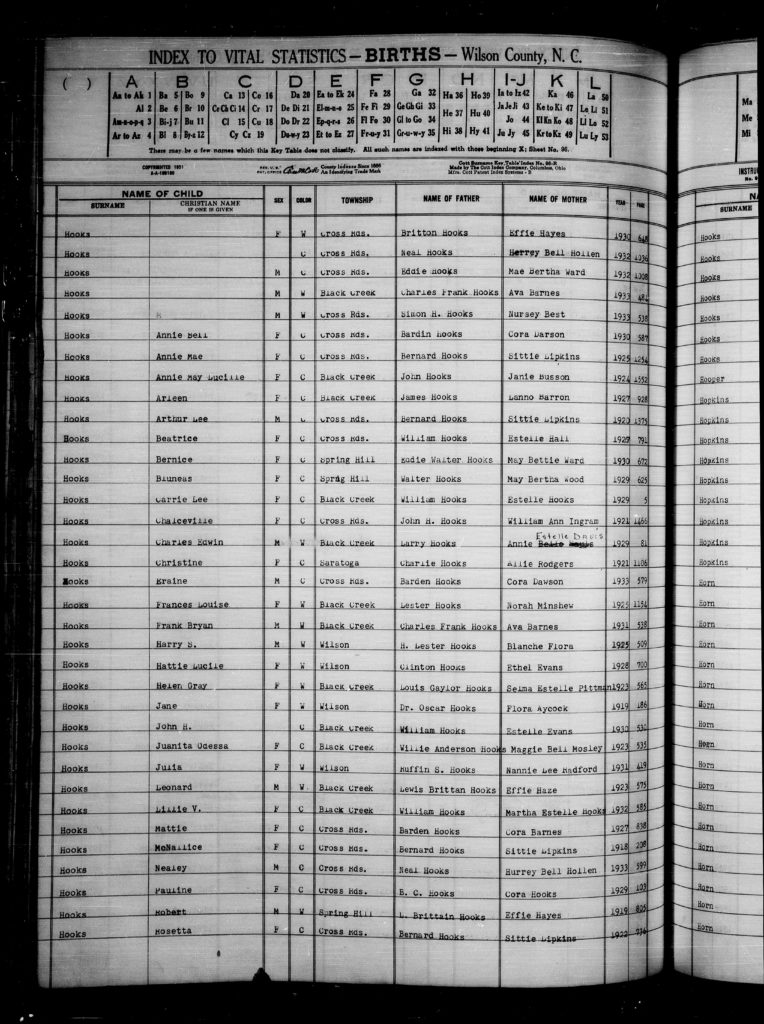 INDEX TO VITAL STATISTICS — BIRTHS — Wilson County, N. C.
( ) A B C D E F G H I-J K L
Aa to Ak 1 Ba 5 Bo 9 Ca 13 Co 16 Da 20 Ea to Ek 24 Fa 28 Ga 32 Ha 36 Ho 39 Ia to Iz 42 Ka 46 La 50
Al 2 Be 6 Br 10 Ce Ch Ci 14 Cr 17 De Di 21 El-m-n-o 25 Fe Fi 29 Ge Gh Gi 33 He 37 Hu 40 Ja Je Ji 43 Ke to Ki 47 Le Li 51
Am-n-o-p-q 3 Bi-j 7 Bu 11 Cl 15 Cu 18 Do Dr 22 Ep-q-r-s 26 Fl Fo 30 Gl to Go 34 Jo 44 Kl Kn Ko 48 Ll Lo 52
Ar to Az 4 Bl 8 By-z 12 Cy Cz 19 Du-w-y 23 Et to Ez 27 Fr-u-y 31 Gr-u-w-y 35 Hi 38 Hy 41 Ju Jy 45 Kr to Kz 49 Lu Ly 53
There may be a few names which this Key Table does not classify. All such names are indexed with those beginning X; Sheet No. 96.
COPYRIGHTED 1931
County Indexes Since 1888
An Identifying Trade Mark
Cott Surname Key Table Index No. 96-R
Made by The Cott Index Company, Columbus, Ohio
Mfrs. Cott Patent Index Systems - B
NAME OF CHILD SEX COLOR TOWNSHIP NAME OF FATHER NAME OF MOTHER YEAR PAGE
SURNAME CHRISTIAN NAME
IF ONE IS GIVEN
Hooks F W Cross Rds. Britton Hooks Effie Hayes 1930 648
Hooks C Cross Rds. Neal Hooks Herrey Bell Hollen 1932 1036
Hooks M C Cross Rds. Eddie Hooks Mae Bertha Ward 1932 1008
Hooks M W Black Creek Charles Frank Hooks Ava Barnes 1933 484
Hooks M W Cross Rds. Simon H. Hooks Nursey Best 1933 538
Hooks Annie Bell F C Cross Rds. Bardin Hooks Cora Darson 1930 587
Hooks Annie Mae F C Cross Rds. Bernard Hooks Sittie Lipkins 1925 1254
Hooks Annie May Lucille F C Black Creek John Hooks Janie Busson 1924 1552
Hooks Arleen F C Black Creek James Hooks Lanno Barron 1927 928
Hooks Arthur Lee M C Cross Rds. Bernard Hooks Sittie Lipkins 1920 1375
Hooks Beatrice F C Cross Rds. William Hooks Estelle Hall 1927 791
Hooks Bernice F C Spring Hill Eddie Walter Hooks May Bettie Ward 1930 672
Hooks Bluneas F C Sprng Hill Walter Hooks May Bertha Wood 1929 625
Hooks Carrie Lee F C Black Creek William Hooks Estelle Hooks 1929 5
Hooks Chalceville F C Cross Rds. John H. Hooks William Ann Ingram 1921 1466
Estelle Davis
Hooks Charles Edwin M W Black Creek Larry Hooks Annie 1929 81
Hooks Christine F C Saratoga Charlie Hooks Allie Rodgers 1921 1106
Hooks Eraine M C Cross Rds. Barden Hooks Cora Dawson 1933 579
Hooks Frances Louise F W Black Creek Lester Hooks Norah Minshew 1925 1154
Hooks Frank Bryan M W Black Creek Charles Frank Hooks Ava Barnes 1931 538
Hooks Harry S. M W Wilson H. Lester Hooks Blanche Flora 1925 509
Hooks Hattie Lucile F W Wilson Clinton Hooks Ethel Evans 1928 700
Hooks Helen Gray F W Black Creek Louis Gaylor Hooks Selma Estelle Pittman 1923 565
Hooks Jane F W Wilson Dr. Oscar Hooks Flora Aycock 1919 186
Hooks John H. C Black Creek William Hooks Estelle Evans 1930 530
Hooks Juanita Odessa F C Black Creek Willie Anderson Hooks Maggie Bell Mosley 1923 535
Hooks Julia F W Wilson Ruffin S. Hooks Nannie Lee Radford 1931 419
Hooks Leonard M W Black Creek Lewis Brittan Hooks Effie Haze 1923 575
Hooks Lillie V. F C Black Creek William Hooks Martha Estelle Hooks 1932 585
Hooks Mattie F C Cross Rds. Barden Hooks Cora Barnes 1927 838
Hooks McNallice F C Cross Rds. Bernard Hooks Sittie Lipkins 1918 208
Hooks Nealey M C Cross Rds. Neal Hooks Hurrey Bell Hollen 1933 599
Hooks Pauline F C Cross Rds. B. C. Hooks Cora Hooks 1929 103
Hooks Robert M W Spring Hill L. Brittain Hooks Effie Hayes 1919 805
Hooks Rosetta F C Cross Rds. Bernard Hooks Sittie Lipkins 1922 936
Ma
Me
Mi
INSTRU
NA
SURNAME
Hooks
Hooks
Hooks
Hooks
Hooks
Hooks
Hooks
Hooper
Hopkins
Hopkins
Hopkins
Hopkins
Hopkins
Hopkins
Hopkins
Hopkins
Hopkins
Horn
Horn
Horn
Horn
Horn
Horn
Horn
Horn
Horn
Horn
Horn
Horn
Horn
Horn
Horn
Horn
Horn
Horn